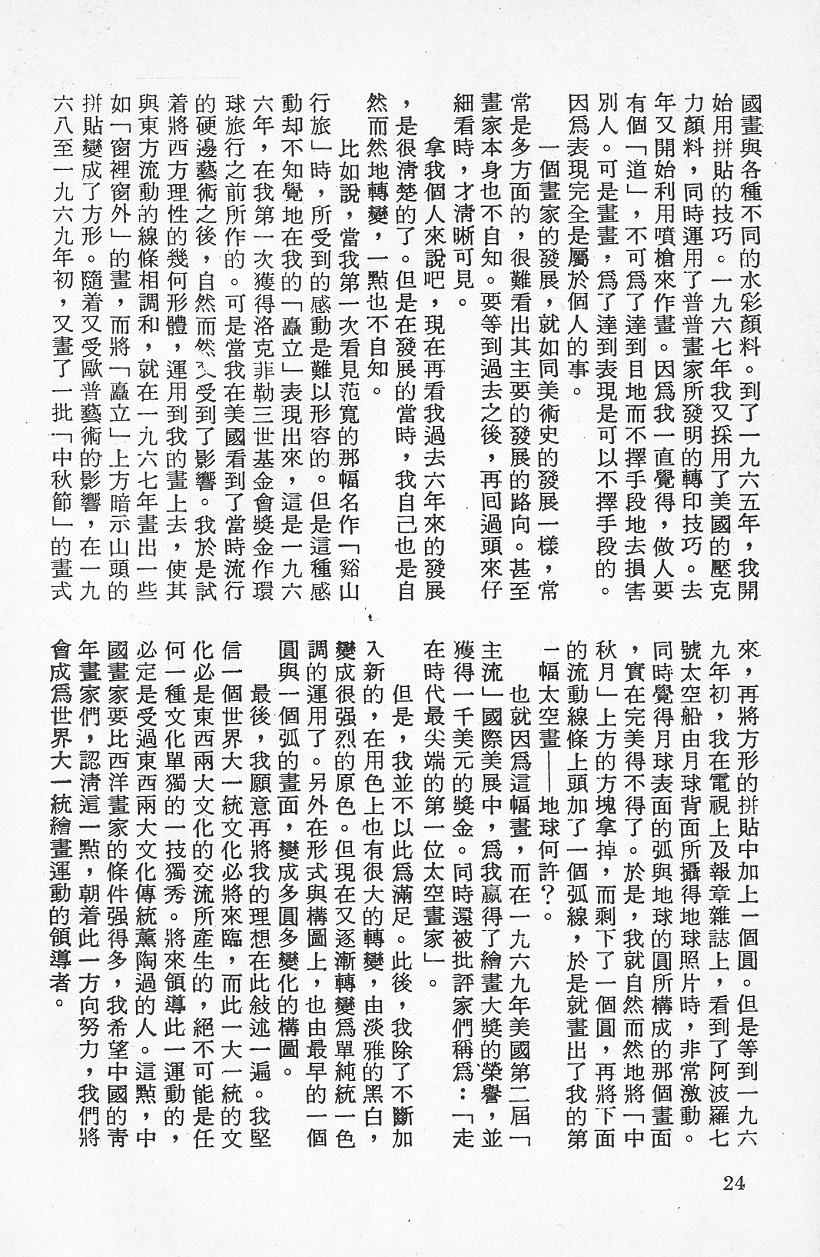 國畫與各種不同的水彩顏料。到了一九六五年，我開
始用拼貼的技巧。一九六七年我又採用了美國的壓克
力顏料，同時運用了普普畫家所發明的轉印技巧。去
年又開始利用噴槍來作畫。因爲我一直覺得，做人要
有個「道」，不可爲了達到目地而不擇手段地去損害
別人。可是畫畫，爲了達到表現是可以不擇手段的。
因爲表現完全是屬於個人的事。
一個畫家的發展，就如同美術史的發展一樣，常
常是多方面的，很難看出其主要的發展的路向。甚至
畫家本身也不自知。要等到過去之後，再回過頭來仔
細看時，才淸晰可見。
拿我個人來說吧，現在再看我過去六年來的發展
，是很淸楚的了。但是在發展的當時，我自己也是自
然而然地轉變，一點也不自知。
比如說，當我第一次看見范寬的那幅名作「谿山
行旅」時，所受到的感動是難以形容的。但是這種感
動却不知覺地在我的「矗立」表現出來，這是一九六
六年，在我第一次獲得洛克菲勒三世基金會獎金作環
球旅行之前所作的。可是當我在美國看到了當時流行
的硬邊藝術之後，自然而然又受到了影響。我於是試
着將西方理性的幾何形體，運用到我的畫上去，使其
與東方流動的線條相調和，就在一九六七年畫出一些
如「窗裡窗外」的畫，而將「矗立」上方暗示山頭的
拼貼變成了方形。隨着又受歐普藝術的影響，在一九
六八至一九六九年初，又畫了一批「中秋節」的畫式
來，再將方形的拼貼中加上一個圓。但是等到一九六
九年初，我在電視上及報章雜誌上，看到了阿波羅七
號太空船由月球背面所攝得地球照片時，非常激動。
同時覺得月球表面的弧與地球的圓所構成的那個畫面
，實在完美得不得了。於是，我就自然而然地將「中
秋月」上方的方塊拿掉，而剩下了一個圓，再將下面
的流動線條上頭加了一個弧線，於是就畫出了我的第
一幅太空畫——地球何許？。
也就因爲這幅畫，而在一九六九年美國第二屆「
主流」國際美展中，爲我贏得了繪畫大獎的榮譽，並
獲得一千美元的獎金。同時還被批評家們稱爲：「走
在時代最尖端的第一位太空畫家」。
但是，我並不以此爲滿足。此後，我除了不斷加
入新的，在用色上也有很大的轉變，由淡雅的黑白，
變成很强烈的原色。但現在又逐漸轉變爲單純統一色
調的運用了。另外在形式與構圖上，也由最早的一個
圓與一個弧的畫面，變成多圓多變化的構圖。
最後，我願意再將我的理想在此敍述一遍。我堅
信一個世界大一統文化必將來臨，而此一大一統的文
化必是東西兩大文化的交流所產生的，絕不可能是任
何一種文化單獨的一技獨秀。將來領導此一運動的，
必定是受過東西兩大文化傳統薰陶過的人。這點，中
國畫家要比西洋畫家的條件强得多，我希望中國的靑
年畫家們，認淸這一點，朝着此一方向努力，我們將
會成爲世界大一統繪畫運動的領導者。
24